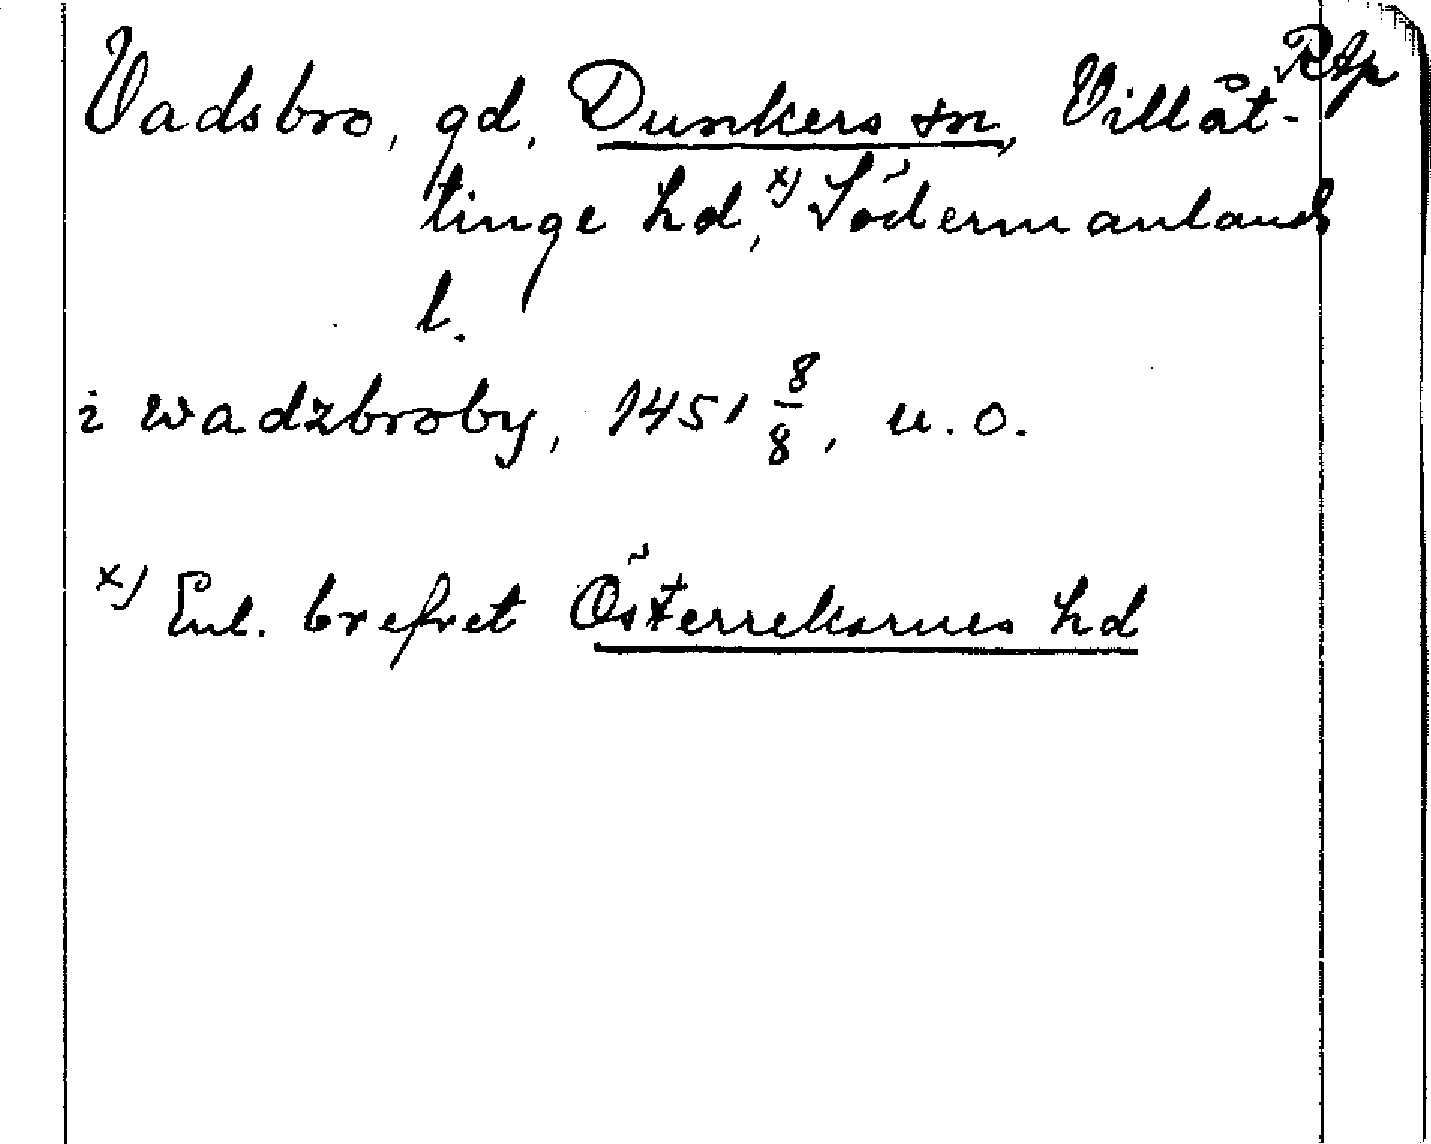 Rtp
Vadsbro, gd, Dunkers sn, Villåt-
tinge hd,x) Södermanlands
l.
i wadzbroby, 1451 8/8, u.o.
x) Enl. brefvet Österrekarnes hd